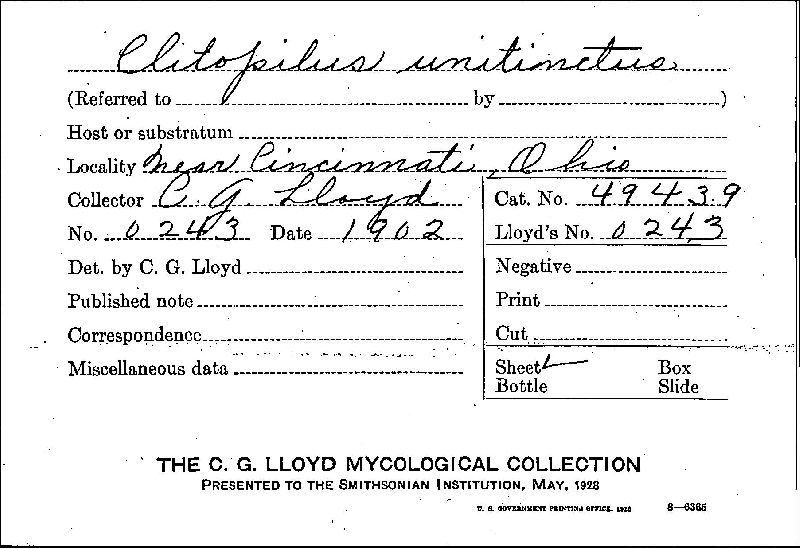 Clitopilus unitinctus
(Referred to by )
Host or substratum
Locality Near Cincinnati, Ohio
Collector C. G. Lloyd
Cat. No. 49439
No. 0243 Date 1902
Lloyd's No. 0243
Det. by C. G. Lloyd
Negative
Published note
Print
Correspondence
Cut
Miscellaneous data
Sheet ✓ Box
Bottle Slide
THE C. G. LLOYD MYCOLOGICAL COLLECTION
PRESENTED TO THE SMITHSONIAN INSTITUTION, MAY, 1928
U. S. GOVERNMENT PRINTING OFFICE. 1928 8—6365